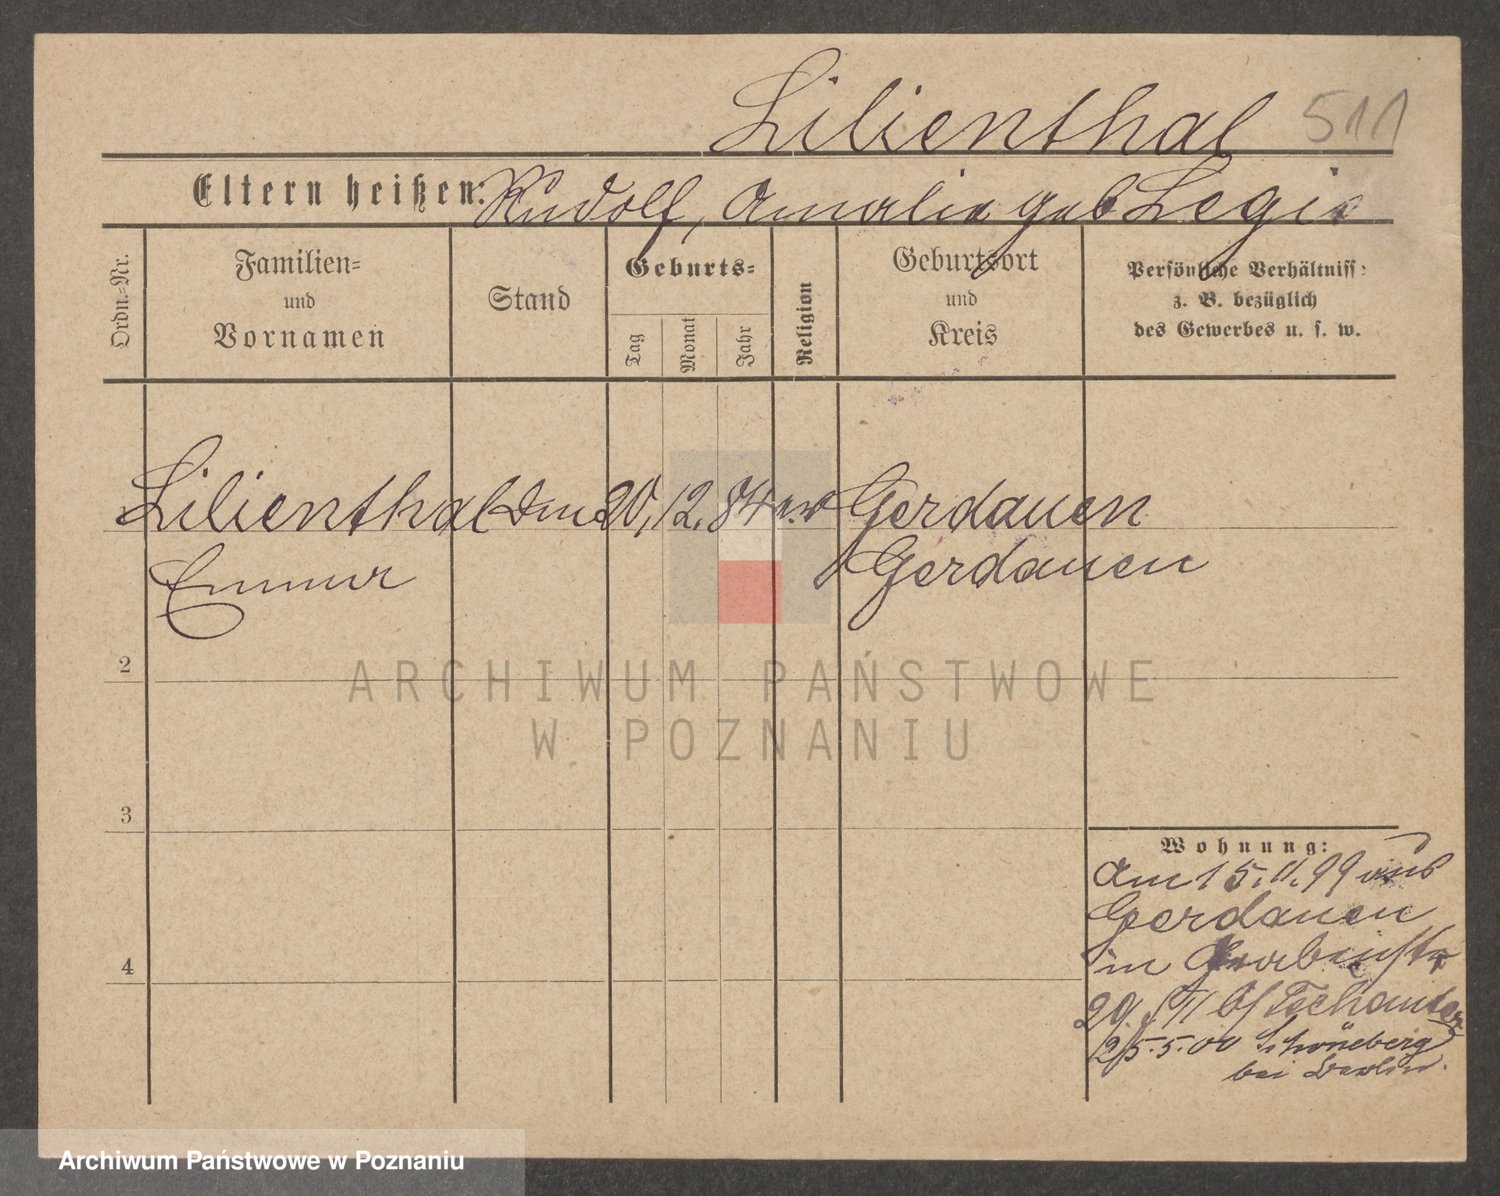 Lilienthal 511
Eltern heißen: Rudolf, Amalie geb Legis
Ordn.-Nr.
Familien-
und
Vornamen
Stand
Geburts-
Tag
Monat
Jahr
Religion
Geburtsort
und
Kreis
Persönliche Verhältniss:
z. B. bezüglich
des Gewerbes u. s. w.
Lilienthal 20, 12. 84 Gerdauen
Gerdauen
2
3
4
Wohnung:
Am 15. 11. 99 aus
Gerdauen
in
29
25.5.00 Schöneberg
bei Berlin.
ARCHIWUM PAŃSTWOWE
W POZNANIU
Archiwum Państwowe w Poznaniu